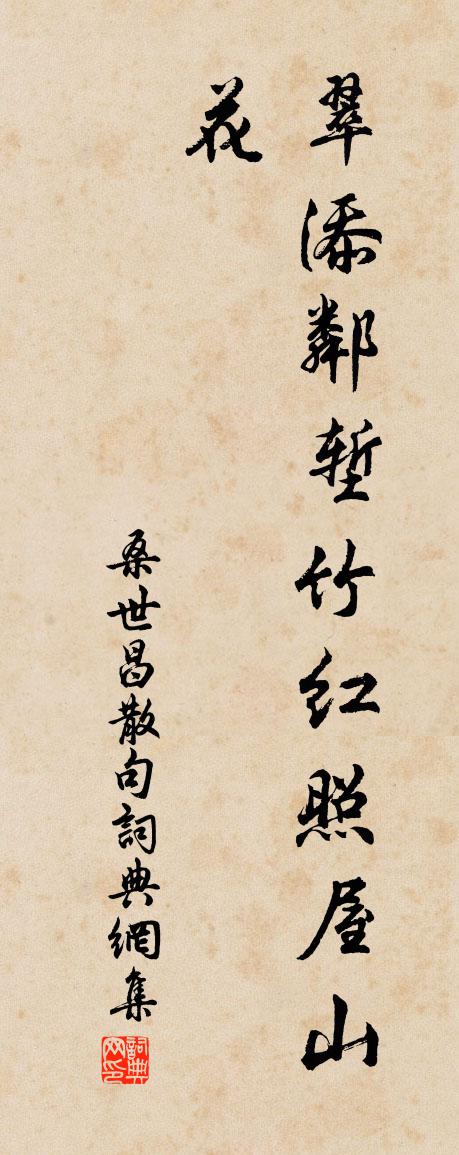 翠添鄰塹竹紅照屋山
花
桑世昌散句詞典網集
詞典网印